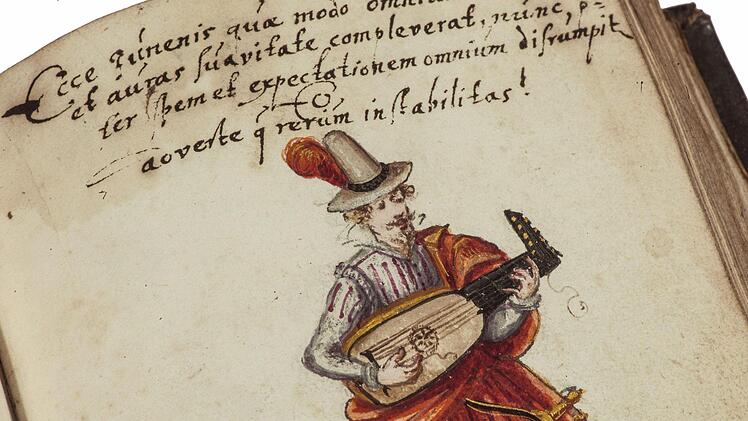 Ecce iuuenis quæ modo omni
et auras suauitate compleuerat, nunc, p-
ter spem et expectationem omnium disrumpit
O
aduerte q̃ rerum instabilitas!